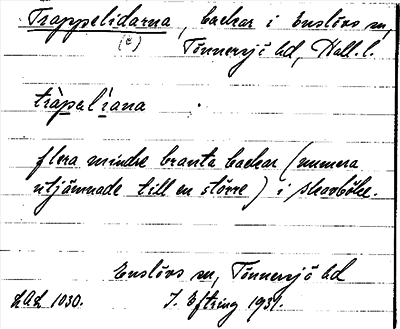 Trappelidarna, backar i Enslövs sn,
(e)
Tönnersjö hd, Hall. l.
tràpalíana
flera mindre branta backar (numera
utjämnade till en större) i skovböke.
Enslövs sn, Tönnersjö hd
LAL 1030. J. Eftring 1931.